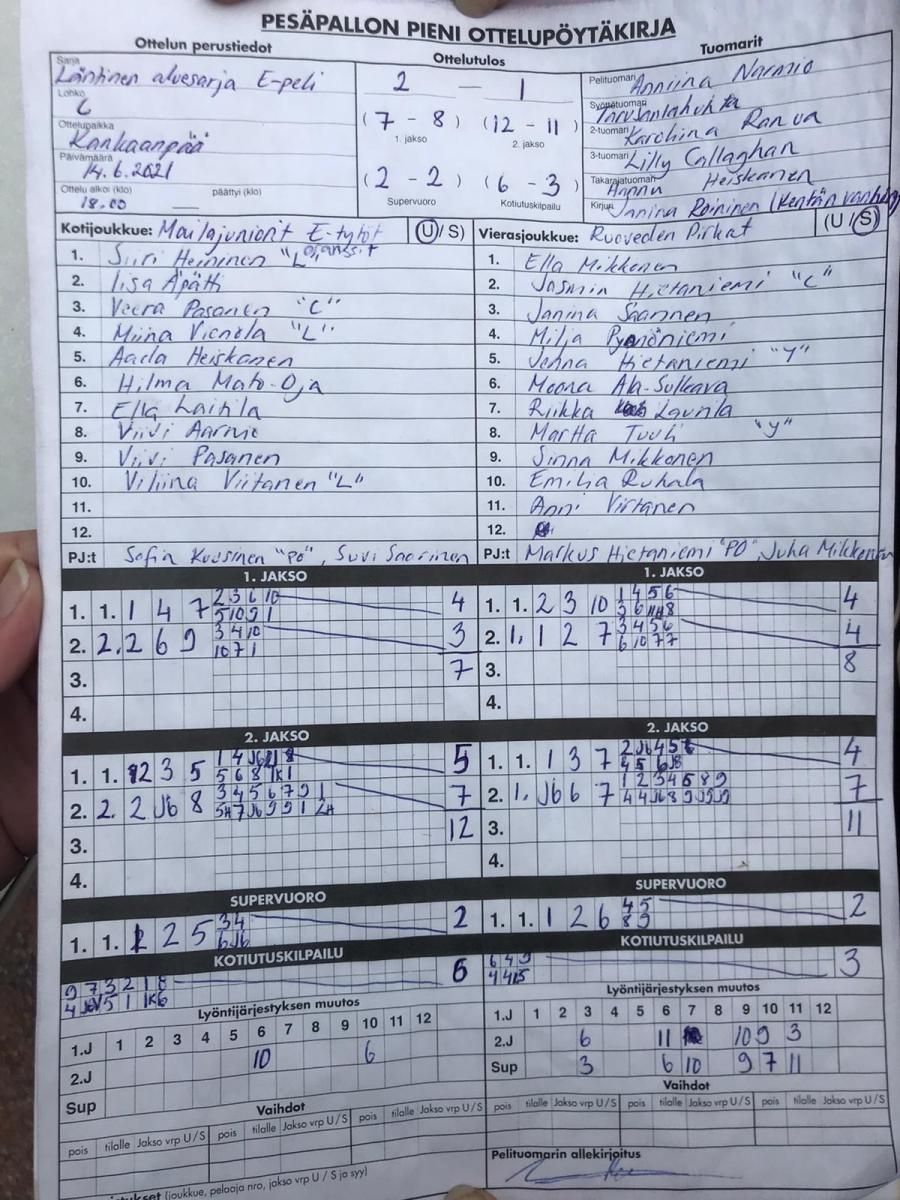 PESÄPALLON PIENI OTTELUPÖYTÄKIRJA
Ottelun perustiedot
Ottelutulos
Tuomarit
Sarja
Läntinen aluesarja E-peli
Lohko
C
Ottelupaikka
Kankaanpää
Päivämäärä
14.6.2021
Ottelu alkoi (klo) päättyi (klo)
18.00 —
2 — 1
(7 - 8) (12 - 11)
1. jakso 2. jakso
(2 - 2) (6 - 3)
Supervuoro Kotiutuskilpailu
Pelituomari Anniina Narmio
Syöttötuomari
2-tuomari Karoliina Ranua
3-tuomari Lilly Callaghan
Takarajatuomari Hannu Heiskanen
Kirjuri Janina Roininen (Kentän vanhin)
Kotijoukkue: Mailajuniorit E-tytöt (U / S)
1. Siiri Heininen "L"
2. Iisa Äpätti
3. Veera Pasanen "C"
4. Miina Vienola "L"
5. Aada Heiskanen
6. Hilma Mato-Oja
7. Ella Laitila
8. Viivi Aarnio
9. Viivi Pasanen
10. Viliina Viitanen "L"
11.
12.
PJ:t Sofia Kuusinen "PO", Suvi Saarinen
Vierasjoukkue: Ruoveden Pirkat (U / S)
1. Ella Mikkonen
2. Jasmin Hietaniemi "C"
3. Janina Saarinen
4. Milja Pyönöniemi
5. Jenna Hietaniemi "Y"
6. Moona Ala-Sulkava
7. Riikka Launla
8. Martta Tuuli "Y"
9. Sinna Mikkonen
10. Emilia Ruhala
11. Anni Virtanen
12.
PJ:t Markus Hietaniemi "PO", Juha Mikkonen
1. JAKSO
1. 1. 1 4 7 2 3 6 10 4
5 10 9 1
2. 2. 2 6 9 3 4 10 3
10 7 1
3. 7
4.
1. JAKSO
1. 1. 2 3 10 1 4 5 6 4
3 6 8
2. 1. 1 2 7 3 4 5 6 4
6 10 7 7
3. 8
4.
2. JAKSO
1. 1. 2 3 5 1 4 J6 8 5
5 6 8 1K 1
2. 2. 2 J6 8 3 4 5 6 7 9 1 7
5H 7 J6 9 9 1 2H
3. 12
4.
2. JAKSO
1. 1. 1 3 7 2 J6 4 5 4
4 5 6 J8
2. 1. J6 6 7 1 2 3 4 5 8 9 7
4 4 J6 8 9 J9 J9
3. 11
4.
SUPERVUORO
1. 1. 1 2 5 3 4 2
6 J6
SUPERVUORO
1. 1. 1 2 6 4 5 2
8 9
KOTIUTUSKILPAILU
9 7 3 2 1 8 6
4 J6V 5 1 1K 6
KOTIUTUSKILPAILU
6 4 9 3
4 4 15
Lyöntijärjestyksen muutos
1.J 1 2 3 4 5 6 7 8 9 10 11 12
2.J 10 6
Sup
Lyöntijärjestyksen muutos
1.J 1 2 3 4 5 6 7 8 9 10 11 12
2.J 6 11 10 9 3
Sup 3 6 10 9 7 11
Vaihdot
pois tilalle Jakso vrp U / S pois tilalle Jakso vrp U / S pois tilalle Jakso vrp U / S
Vaihdot
pois tilalle Jakso vrp U / S pois tilalle Jakso vrp U / S pois tilalle Jakso vrp U / S
Pelituomarin allekirjoitus
(joukkue, pelaaja nro, jakso vrp U / S ja syy)